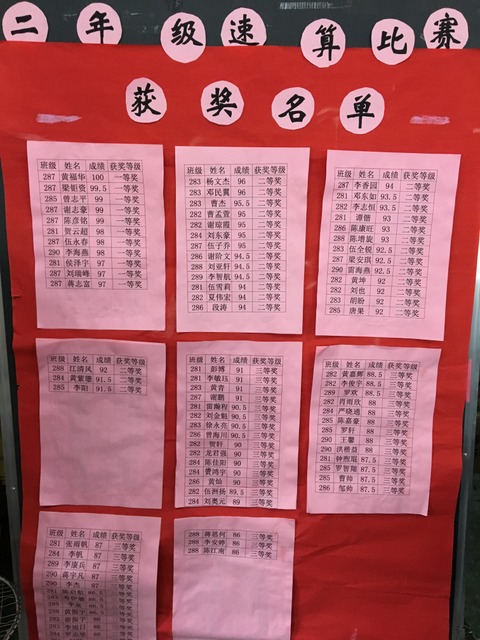 二年级速算比赛
获奖名单
班级 姓名 成绩 获奖等级
287 黄福华 100 一等奖
287 梁钜资 99.5 一等奖
285 曾志平 99 一等奖
287 谢志豪 99 一等奖
287 陈彦铭 99 一等奖
281 贺云超 98 一等奖
287 伍永春 98 一等奖
290 李海燕 98 一等奖
281 侯泽宇 97 一等奖
287 刘瑞峰 97 一等奖
287 蒋志富 97 一等奖
班级 姓名 成绩 获奖等级
283 杨文杰 96 二等奖
283 邓民翼 96 二等奖
283 曹杰 95.5 二等奖
282 曹孟萱 95 二等奖
282 谢琼霞 95 二等奖
284 刘东豪 95 二等奖
287 伍子乔 95 二等奖
286 谢阶文 94.5 二等奖
288 刘亚轩 94.5 二等奖
289 李智航 94.5 二等奖
281 伍雪莉 94 二等奖
282 夏伟宏 94 二等奖
286 段涛 94 二等奖
班级 姓名 成绩 获奖等级
287 李香园 94 二等奖
281 邓东如 93.5 二等奖
282 李志恒 93.5 二等奖
281 谭锴 93 二等奖
286 陈康旺 93 二等奖
288 陈增旋 93 二等奖
283 伍全锐 92.5 二等奖
287 梁安琪 92.5 二等奖
290 雷海燕 92.5 二等奖
282 黄坤 92 二等奖
282 刘也 92 二等奖
283 胡盼 92 二等奖
285 唐果 92 二等奖
班级 姓名 成绩 获奖等级
288 江清风 92 二等奖
284 黄紫珊 91.5 二等奖
285 李阳 91.5 二等奖
班级 姓名 成绩 获奖等级
281 彭博 91 三等奖
281 李敏珏 91 三等奖
283 黄青 91 三等奖
287 谢鹏 91 三等奖
281 雷瀚程 90.5 三等奖
282 刘金魁 90.5 三等奖
283 徐永亮 90.5 三等奖
286 曾海川 90.5 三等奖
282 贺轩 90 三等奖
282 龙君强 90 三等奖
284 陈佳阳 90 三等奖
284 费鸿宇 90 三等奖
286 黄灿 90 三等奖
282 伍洲扬 89.5 三等奖
284 刘奥元 89 三等奖
班级 姓名 成绩 获奖等级
282 黄嘉辉 88.5 三等奖
282 李俊宇 88.5 三等奖
289 罗欢 88.5 三等奖
282 肖雨欣 88 三等奖
284 严晓通 88 三等奖
285 陈嘉豪 88 三等奖
285 罗轩 88 三等奖
290 王馨 88 三等奖
290 洪栖益 88 三等奖
281 钟煦琨 87.5 三等奖
285 罗智翔 87.5 三等奖
285 曹帅 87.5 三等奖
286 邹帅 87.5 三等奖
班级 姓名 成绩 获奖等级
281 张雨帆 87 三等奖
284 李帆 87 三等奖
289 李康兵 87 三等奖
290 蒋宇凡 87 三等奖
290 李杰 87 三等奖
288 蒋思何 86 三等奖
288 李安婷 86 三等奖
288 陈江南 86 三等奖